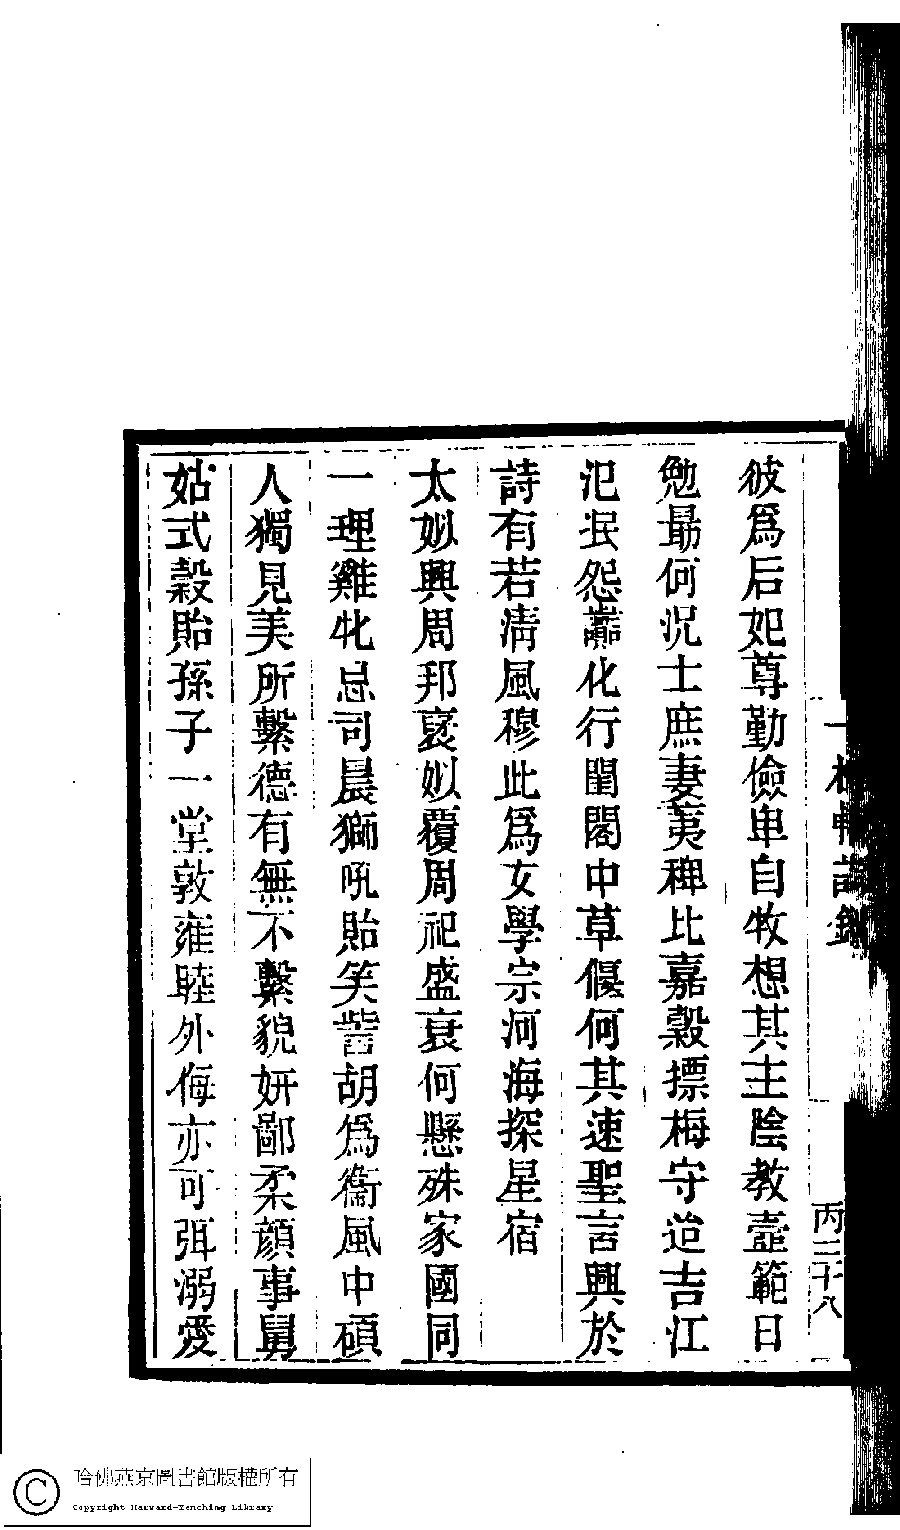 彼爲后妃尊勤儉卑自牧想其主陰教壼範日
勉勗何況士庶妻荑稗比嘉穀摽梅守迨吉江
汜泯怨讟化行閨閤中草偃何其速聖言興於
詩有若淸風穆此爲女學宗河海探星宿
太姒興周邦褒姒覆周祀盛衰何懸殊家國同
一理雞牝忌司晨獅吼貽笑訾胡爲衞風中碩
人獨見美所繫德有無不繫貌妍鄙柔顔事舅
姑式穀貽孫子一堂敦雍睦外侮亦可弭溺愛
丙二十八
哈佛燕京圖書館版權所有
Copyright Harvard-Yenching Library